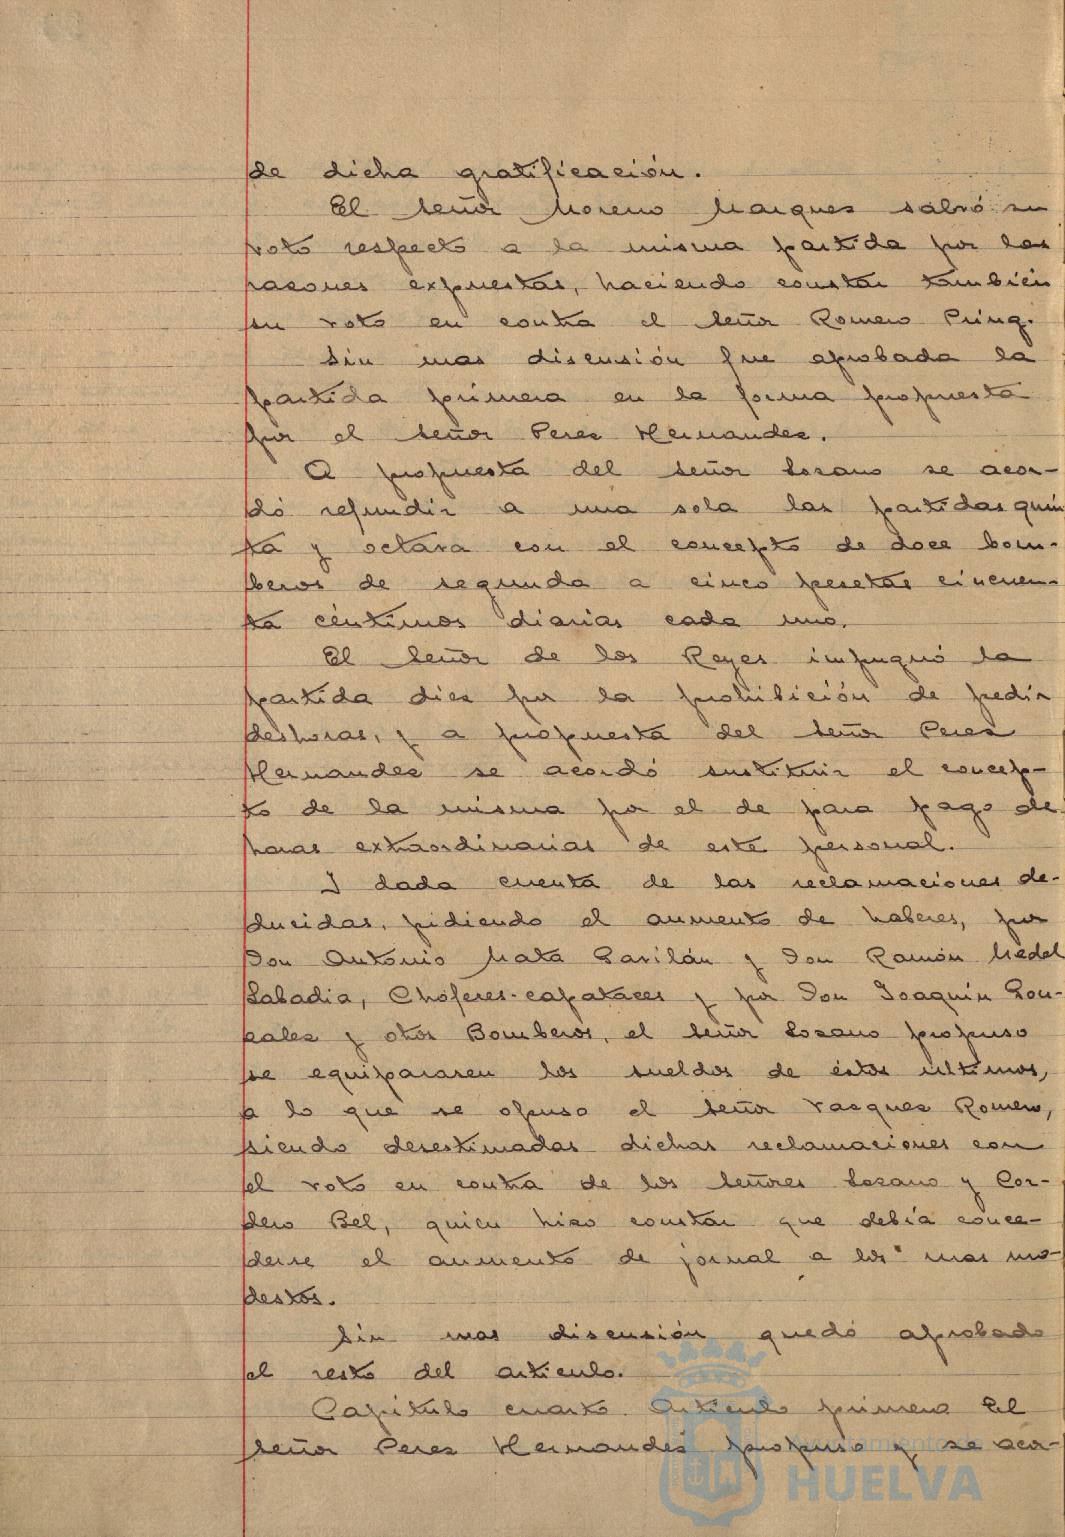 de dicha gratificación.
El Señor Moreno Marques salvó su
voto respecto a la misma partida por las
rasones expuestas, haciendo constar también
su voto en contra el Señor Romero Pring.
Sin mas discusión fue aprobada la
partida primera en la forma propuesta
por el Señor Peres Hernandez.
A propuesta del Señor Losano se acor-
dó refundir a una sola las partidas quin
ta y octava con el concepto de doce bom-
beros de segunda a cinco pesetas cincuen-
ta céntimos diarias cada uno.
El Señor de los Reyes impugnó la
partida dies por la prohibición de pedir
deshoras, y a propuesta del Señor Peres
Hernandez se acordó sustituir el concep-
to de la misma por el de para pago de
horas extraordinarias de este personal.
I dada cuenta de las reclamaciones de-
ducidas, pidiendo el aumento de haberes, por
Don Antonio Mata Gavilán y Don Ramón Medel
Labadia, Chóferes-capataces y por Don Joaquín Gon-
zales y otros Bomberos, el Señor Losano propuso
se equipararen los sueldos de éstos últimos,
a lo que se opuso el Señor Vasques Romero,
siendo desestimadas dichas reclamaciones con
el voto en contra de los Señores Losano y Cor-
dero Bel, quien hiso constar que debía conce-
derse el aumento de jornal a los mas mo-
destos.
Sin mas discusión quedó aprobado
el resto del articulo.
Capitulo cuarto. Articulo primero. El
Señor Peres Hernandes propuso y se acor-
Ayuntamiento de
HUELVA